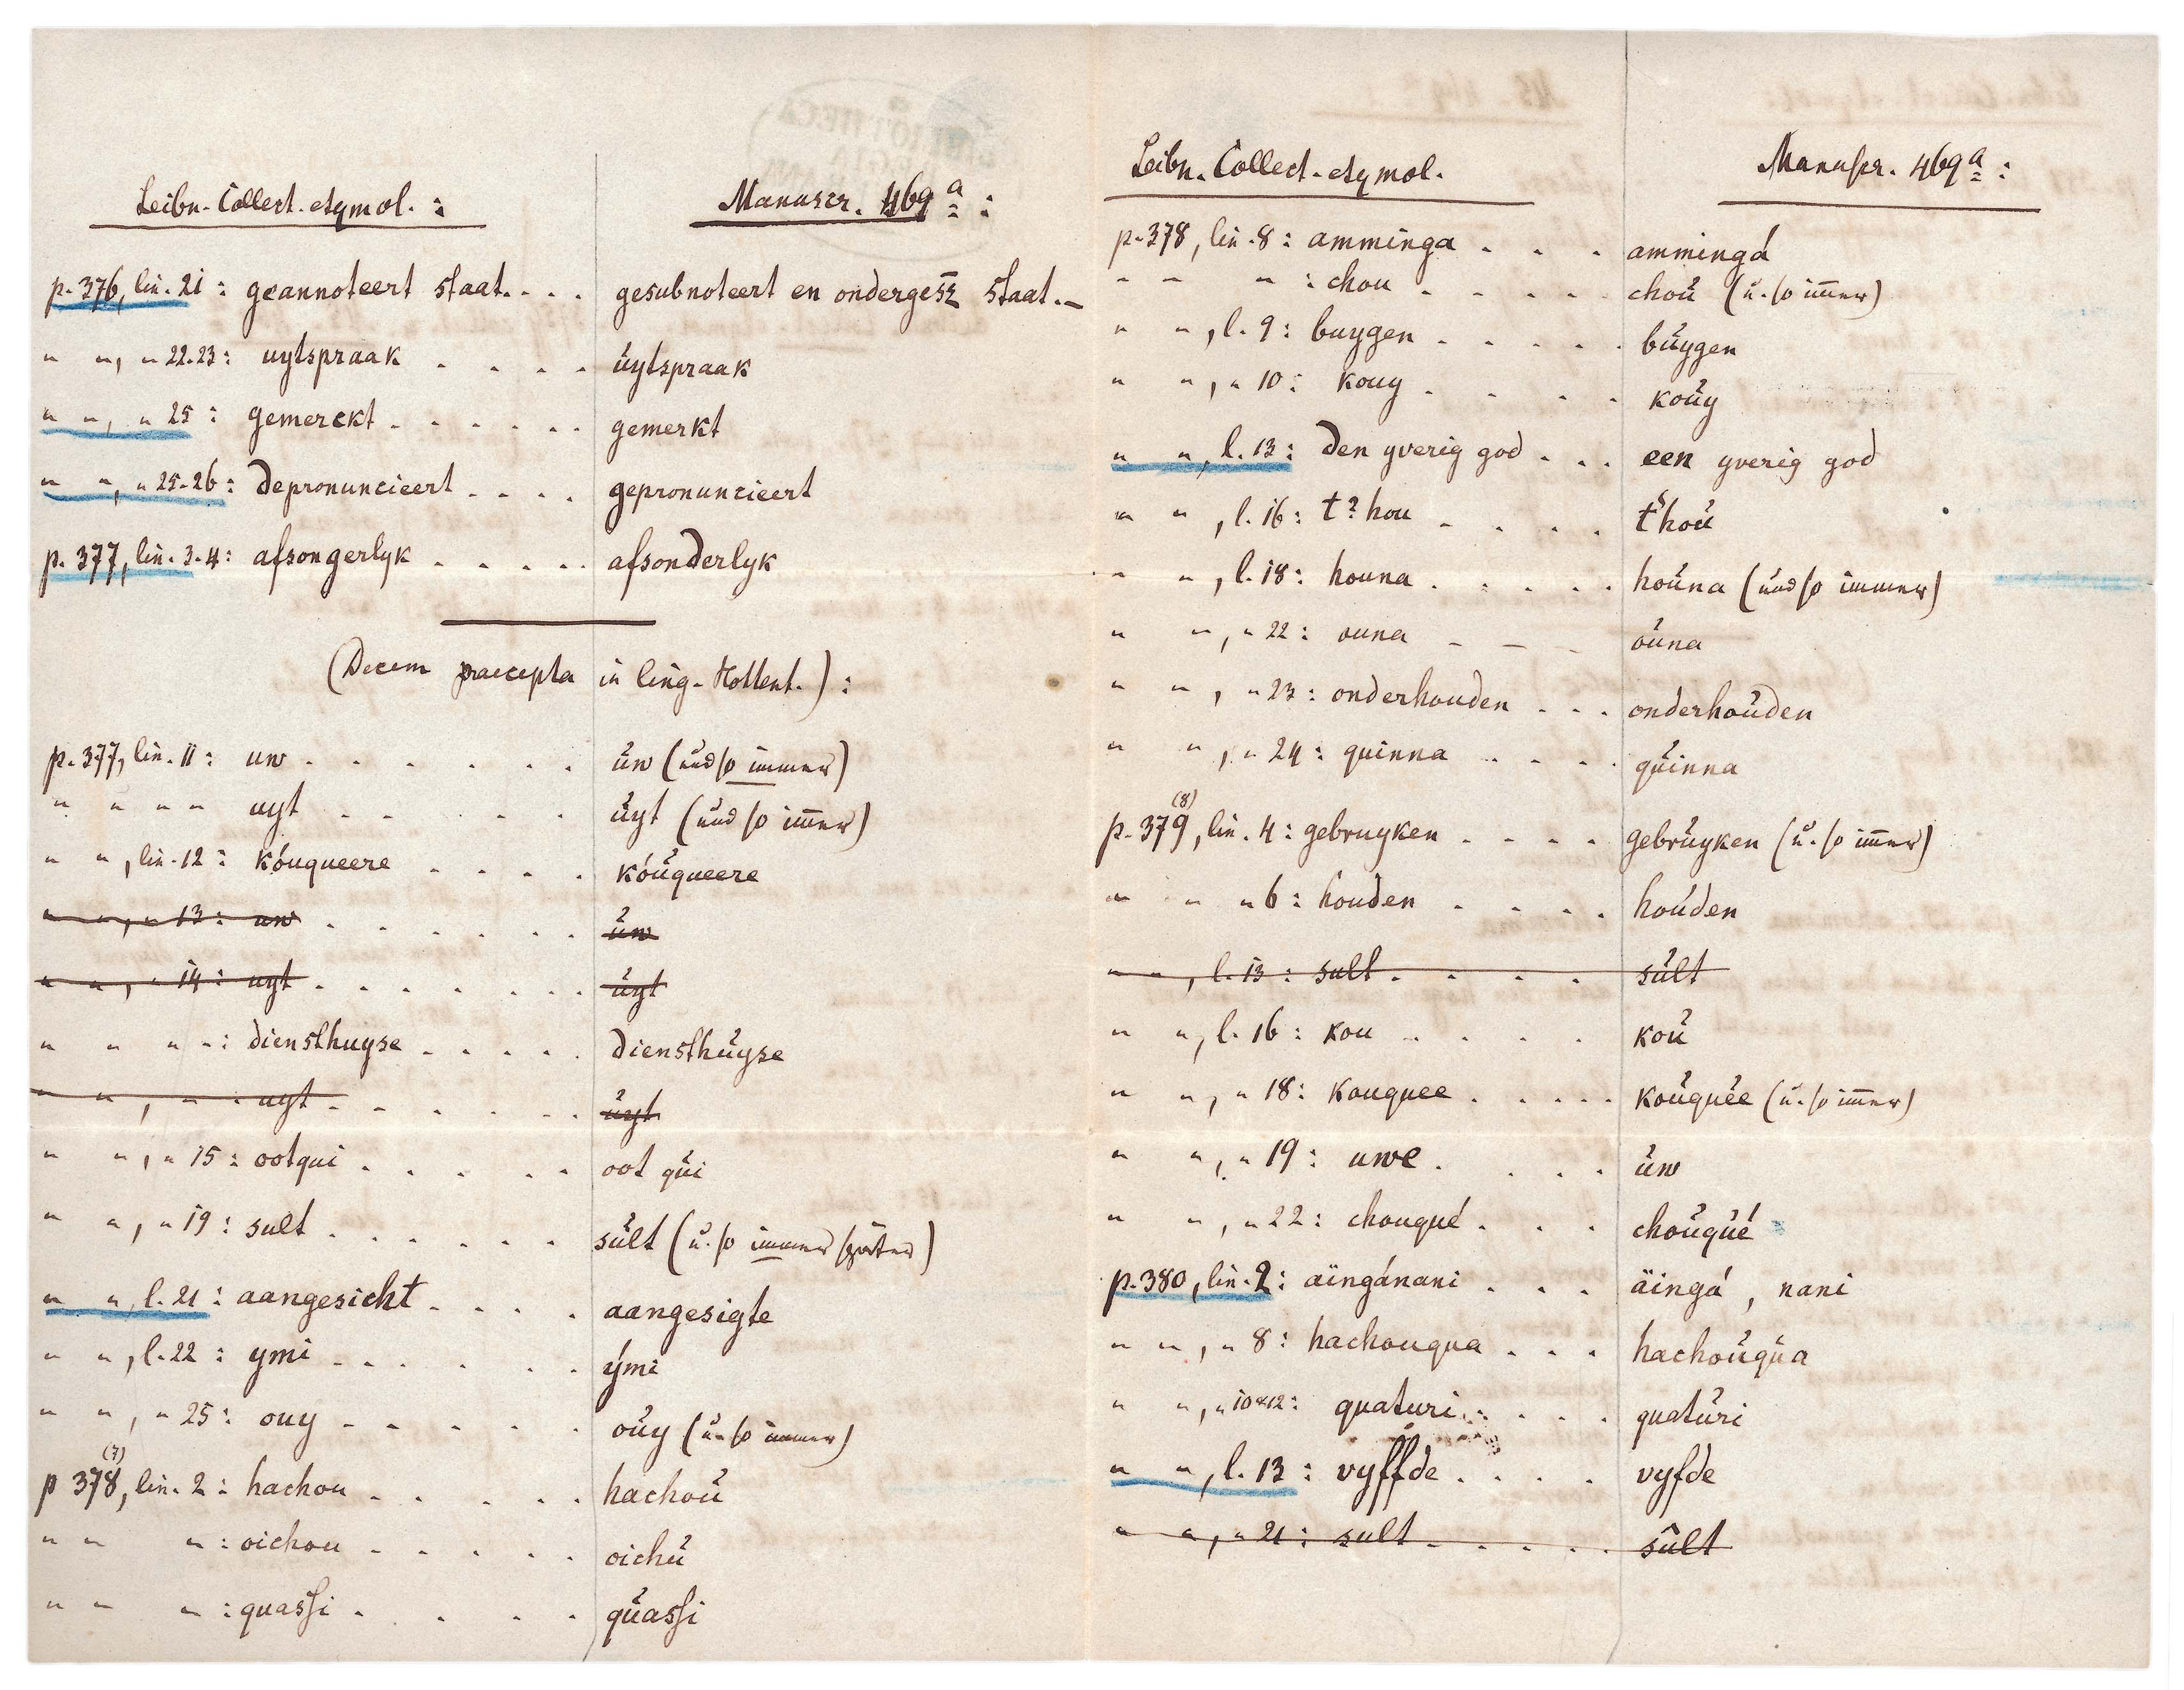 Leibn. Collect. etymol. : Manuscr. 469 a :
p. 376, lin. 21 : geannoteert staat. . . . gesubnoteert en ondergesz staat. –
" ", " 22.23 : uytspraak . . . . ŭytspraak
" ", " 25 : gemerckt . . . . . . gemerkt
" ", " 25-26 : depronuncieert . . . . gepronuncieert
p. 377, lin. 3-4 : afsongerlyk . . . . . afsonderlyk
(Decem praecepta in ling. Hottent.) :
p. 377, lin. 11 : uw . . . . . . ŭw (ŭnd so immer)
" " " " uyt . . . . . ŭyt (ŭnd so im̄er)
" ", lin. 12 : kóuqueere . . . . kóŭqueere
" ", " 13 : uw . . . . . . ŭw
" ", " 14 : uyt . . . . . . . ŭyt
" " " " : diensthuyse . . . . . diensthŭyse
" ", " " uyt . . . . . . ŭyt
" ", " 15 : ootqui . . . . . oot qŭi
" ", " 19 : sult . . . . . . sŭlt (ŭ. so immer später)
" ", l. 21 : aangesicht . . . . aangesigte
" ", l. 22 : ymi . . . . . . ými
" ", " 25 : ouy . . . . . oŭy (ŭ. so immer)
p 378 (7), lin. 2 : hachou . . . . . hachoŭ
" " " : oichou . . . . . oichŭ
" " " : quassi . . . . qŭassi
Leibn. Collect. etymol. Manuscr. 469 a :
p. 378, lin. 8 : amminga . . . ammingá
" " " : chou . . . . choŭ (ŭ. so im̄er)
" ", l. 9 : buygen . . . . . bŭygen
" ", " 10 : kouy . . . . koŭy
" ", l. 13 : den yverig god . . . een yverig god
" ", l. 16 : t? hou . . . . t's hoŭ
" ", l. 18 : houna . . . . . hoŭna (ŭnd so immer)
" ", " 22 : ouna . . . oŭna
" ", " 23 : onderhouden . . . onderhoŭden
" ", " 24 : quinna . . . . qŭinna
p. 379 (8), lin. 4 : gebruyken . . . . gebrŭyken (ŭ. so im̄er)
" " " 6 : houden . . . . hoŭden
" ", l. 13 : sult . . . . sŭlt
" ", l. 16 : kou . . . . koŭ
" ", " 18 : kouquee . . . . . koŭqŭee (ŭ. so im̄er)
" ", " 19 : uwe . . . . ŭw
" ", " 22 : chouqué . . . choŭqŭé
p. 380, lin. 2 : aïngánani . . . äingá, nani
" ", " 8 : hachouqua . . . hachoŭqŭa
" ", " 10 & 12 : quaturi . . . . quatŭri
" ", l. 13 : vyffde . . . . vyfde
" ", " 21 : sult . . . . . sŭlt